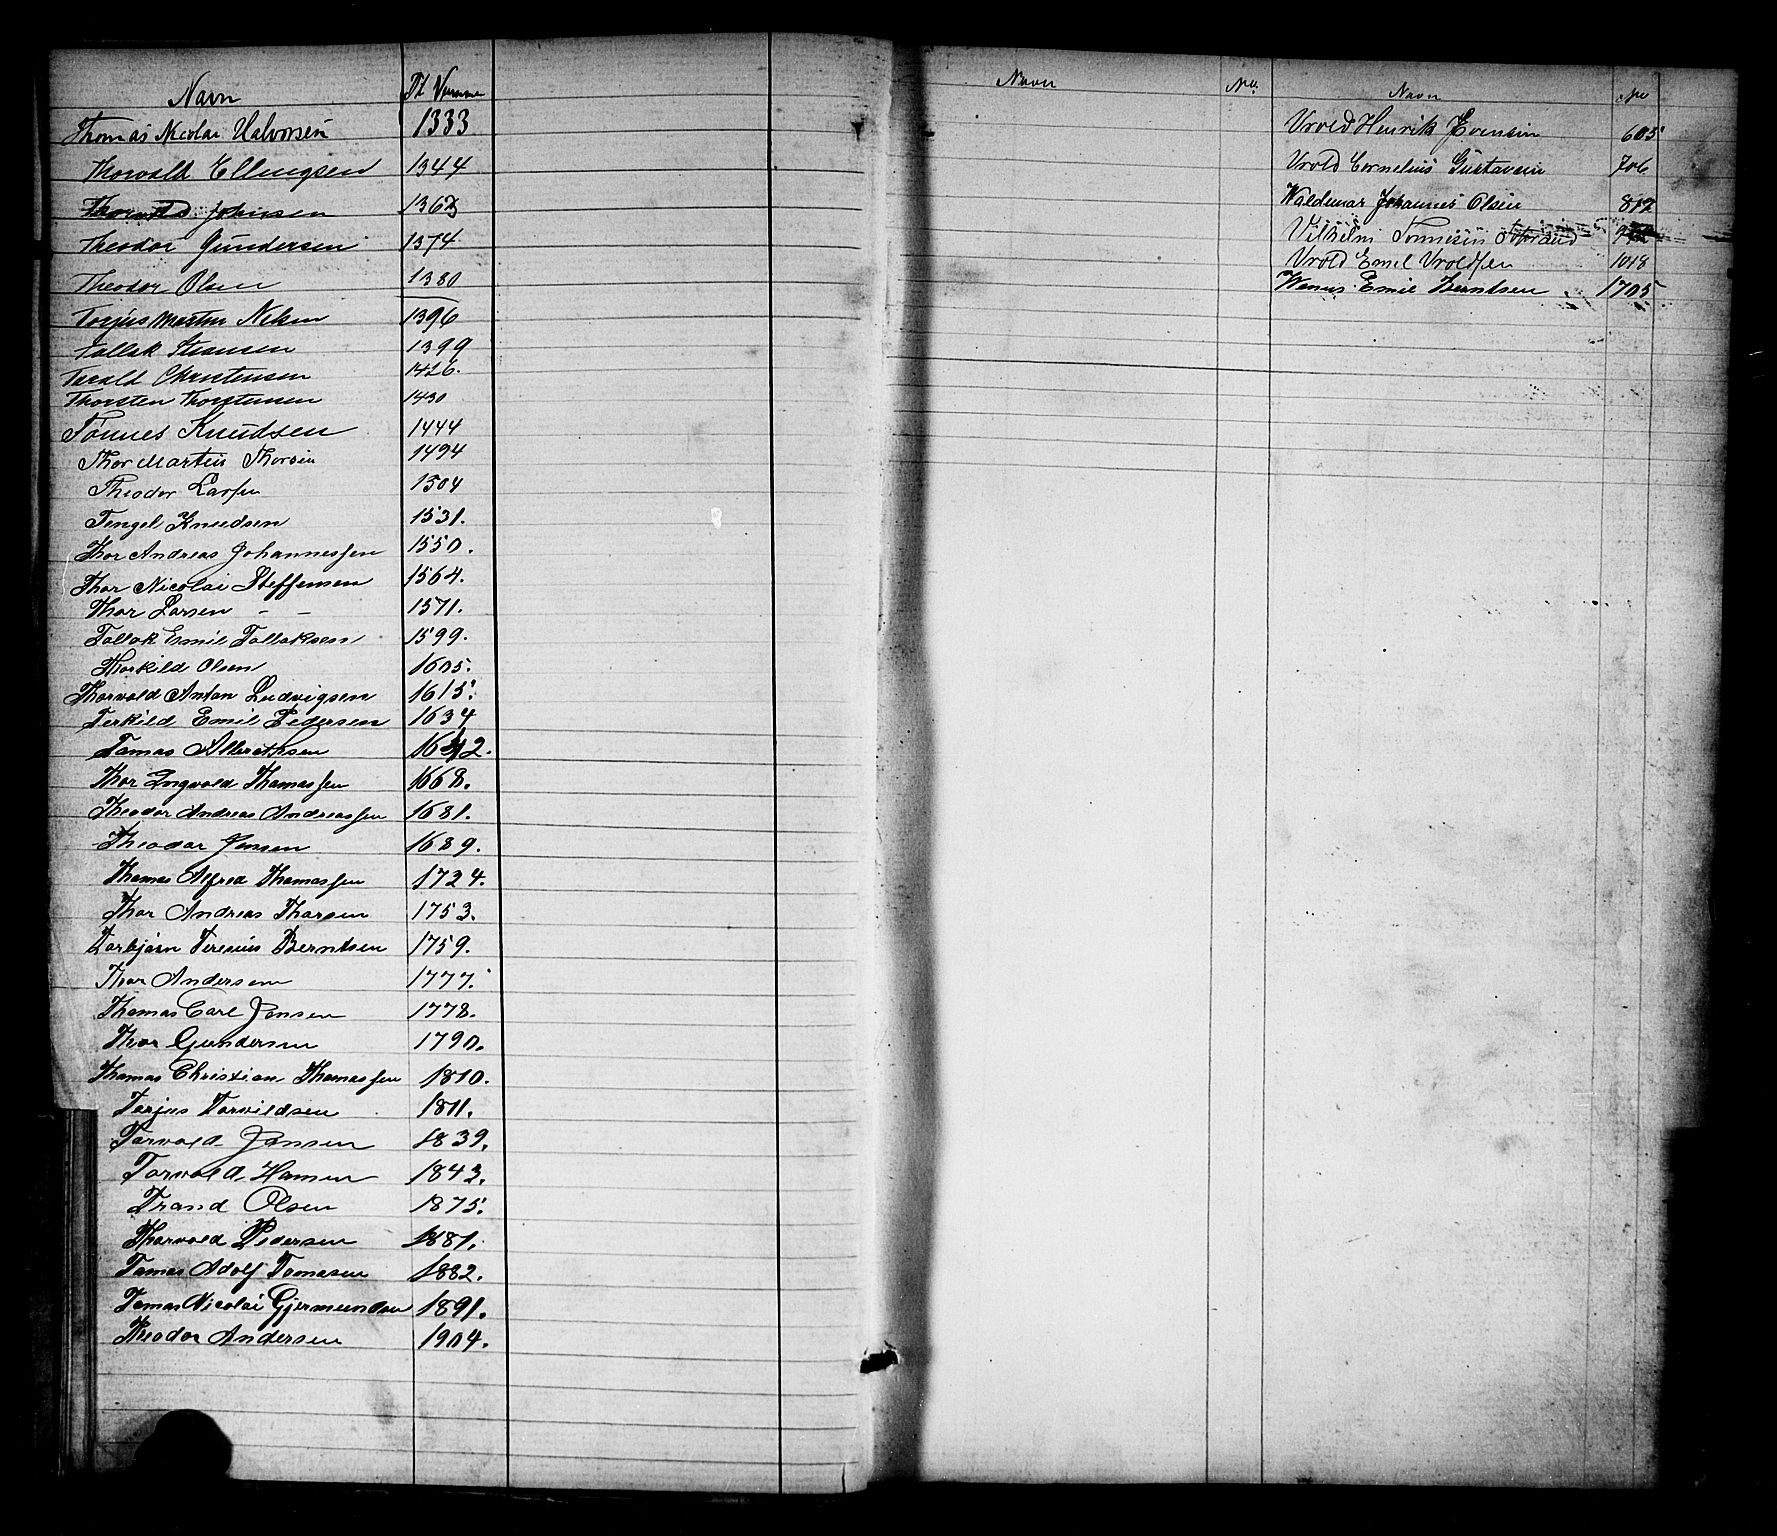 Navn
Thomas Nicolai Halvorsen 1333
Thorvald Ellingsen 1344
Johnsen 1363
Theodor Gundersen 1374
Theodor Olsen 1380
Torjus Martin Nilsen 1396
Tallak Stiansen 1399
Terald Christensen 1426.
Thorsten Thorstensen 1430
Tønnes Knudsen 1444
Thor Martin Thorsen 1494
Theodor Larsen 1504
Tengel Knudsen 1531.
Thor Andreas Johannessen 1550.
Thor Nicolai Steffensen 1564.
Thor Larsen - - 1571.
Tallak Emil Tallaksen 1599.
Thorkild Olsen 1605.
Thorvald Anton Ludvigsen 1615.
Terkild Emil Pedersen 1634
Tomas Albrethsen 1642.
Thor Ingvald Thomassen 1668.
Theodor Andreas Andreassen 1681.
Theodor Jensen 1689.
Thomas Alfred Thomassen 1724.
Thor Andreas Thorsen 1753.
Torbjørn Teresius Berntsen 1759.
Thor Andersen 1777.
Thomas Carl Jensen 1778.
Thor Gundersen 1790.
Thomas Christian Thomassen 1810.
Torjus Torvildsen 1811.
Torvald Jansen 1839.
Torvald Hansen 1843.
Trand Olsen 1875.
Thorvald Pedersen 1881.
Tomas Adolf Tomasen 1882.
Tomas Nicolai Gjermundsen 1891.
Theodor Andersen 1904.
Navn No.
Navn No
Vrold Henrik Evensen 605
Vrold Cornelius Gustavsen 706
Waldemar Johannes Olsen 812
Vilhelm Tønnesen
Vrold Emil Vroldsen 1018
Wenus Emil Berntsen 1705